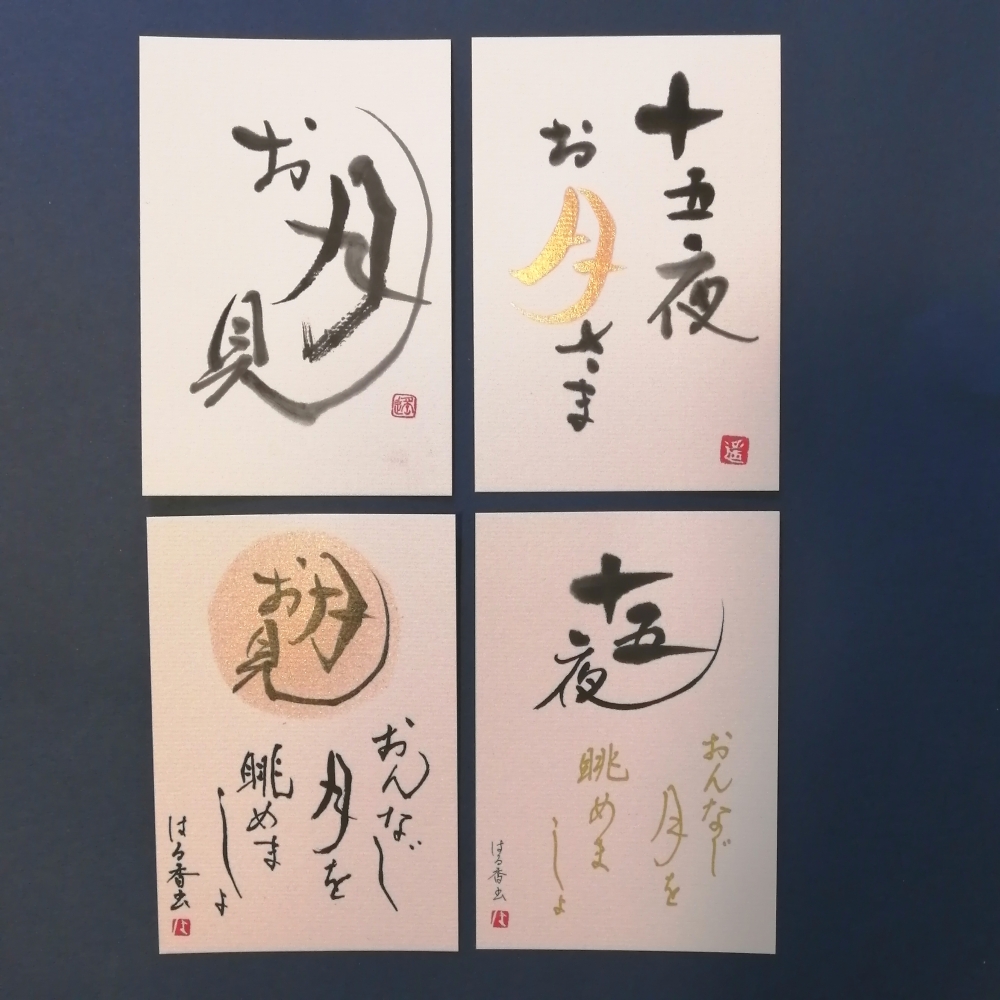 お月見
十五夜
お月さま
遥
お月見
おんなじ
月を
眺めま
しょ
はる香書
は
十五夜
おんなじ
月を
眺めま
しょ
はる香書
は